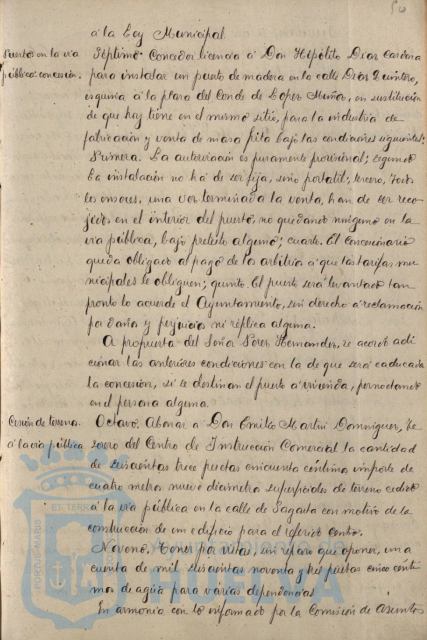 á la Ley Municipal
Puesto en la vía
pública: concesión.
Séptimo: Conceder licencia á Don Hipólito Díaz Cardona
para instalar un puesto de madera en la calle Díaz Quintero,
esquina á la plaza del Conde de López Muñoz, en sustitución
de que hoy tiene en el mismo sitio, para la industria de
fabricación y venta de masa frita bajo las condiciones siguientes:
Primera. La autorización es puramente provisional; segunda
La instalación no ha de ser fija, sino portatil; tercero, Todos
los enseres, una vez terminada la venta, han de ser reco
jidos en el interior del puesto, no quedando ninguno en la
vía pública, bajo pretexto alguno; cuarto. El concesionario
queda obligado al pago de los arbitrios á que las tarifas mu
nicipales le obliguen; quinto. El puesto será levantado tan
pronto lo acuerde el Ayuntamiento, sin derecho á reclamación
por daños y perjuicios ni réplica alguna.
A propuesta del Señor Perez Hernandez, se acordó adi
cionar las anteriores condiciones con la de que será caducada
la concesión, si se destinan el puesto á vivienda, pernoctando
en él persona alguna.
Cesión de terreno
á la vía pública
Octavo. Abonar a Don Emilio Martin Dominguez, Te
sorero del Centro de Instrucción Comercial la cantidad
de seiscientas trece pesetas cincuenta céntimos importe de
cuatro metros nueve diametros superficiales de terreno cedido
á la vía pública en la calle de Sagasta con motivo de la
construcción de un edificio para el referido Centro.
Noveno. Tener por vistas, sin reparo que oponer, una
cuenta de mil seiscientas noventa y tres pesetas cinco centi
mos de agua para várias dependencias
En armonia con lo informado por la Comisión de Asuntos
PORTUS MARIS
ET TERRÆ
HUELVA